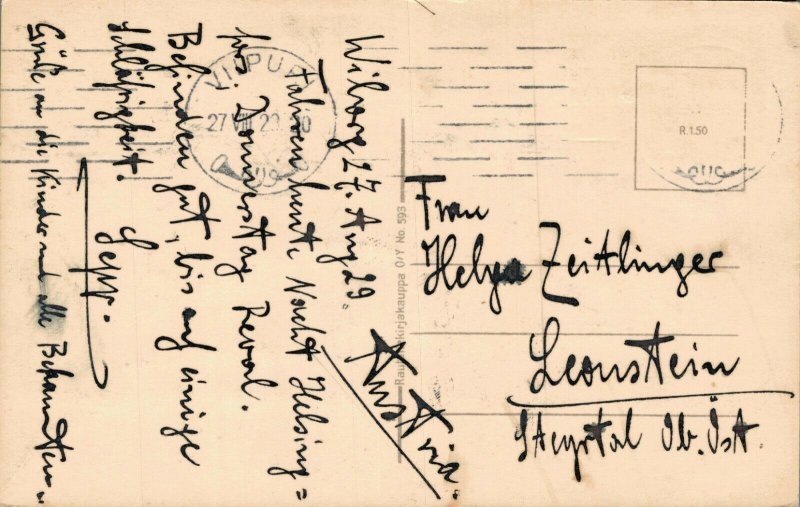 Wiborg 27. Aug 29.
Fahren heute Nacht Helsing=
fors. Donnerstag Reval.
Befinden gut, bis auf einige
Schläfrigkeit.
Sepp.
Grüße an die Kinder und alle Bekannten.
Frau
Helga Zeitlinger
Leonstein
Steyrtal Ob. Öst.
Austria
VIIPURI
27 VIII 29
R.1.50
Rau kirjakauppa O/Y No. 593